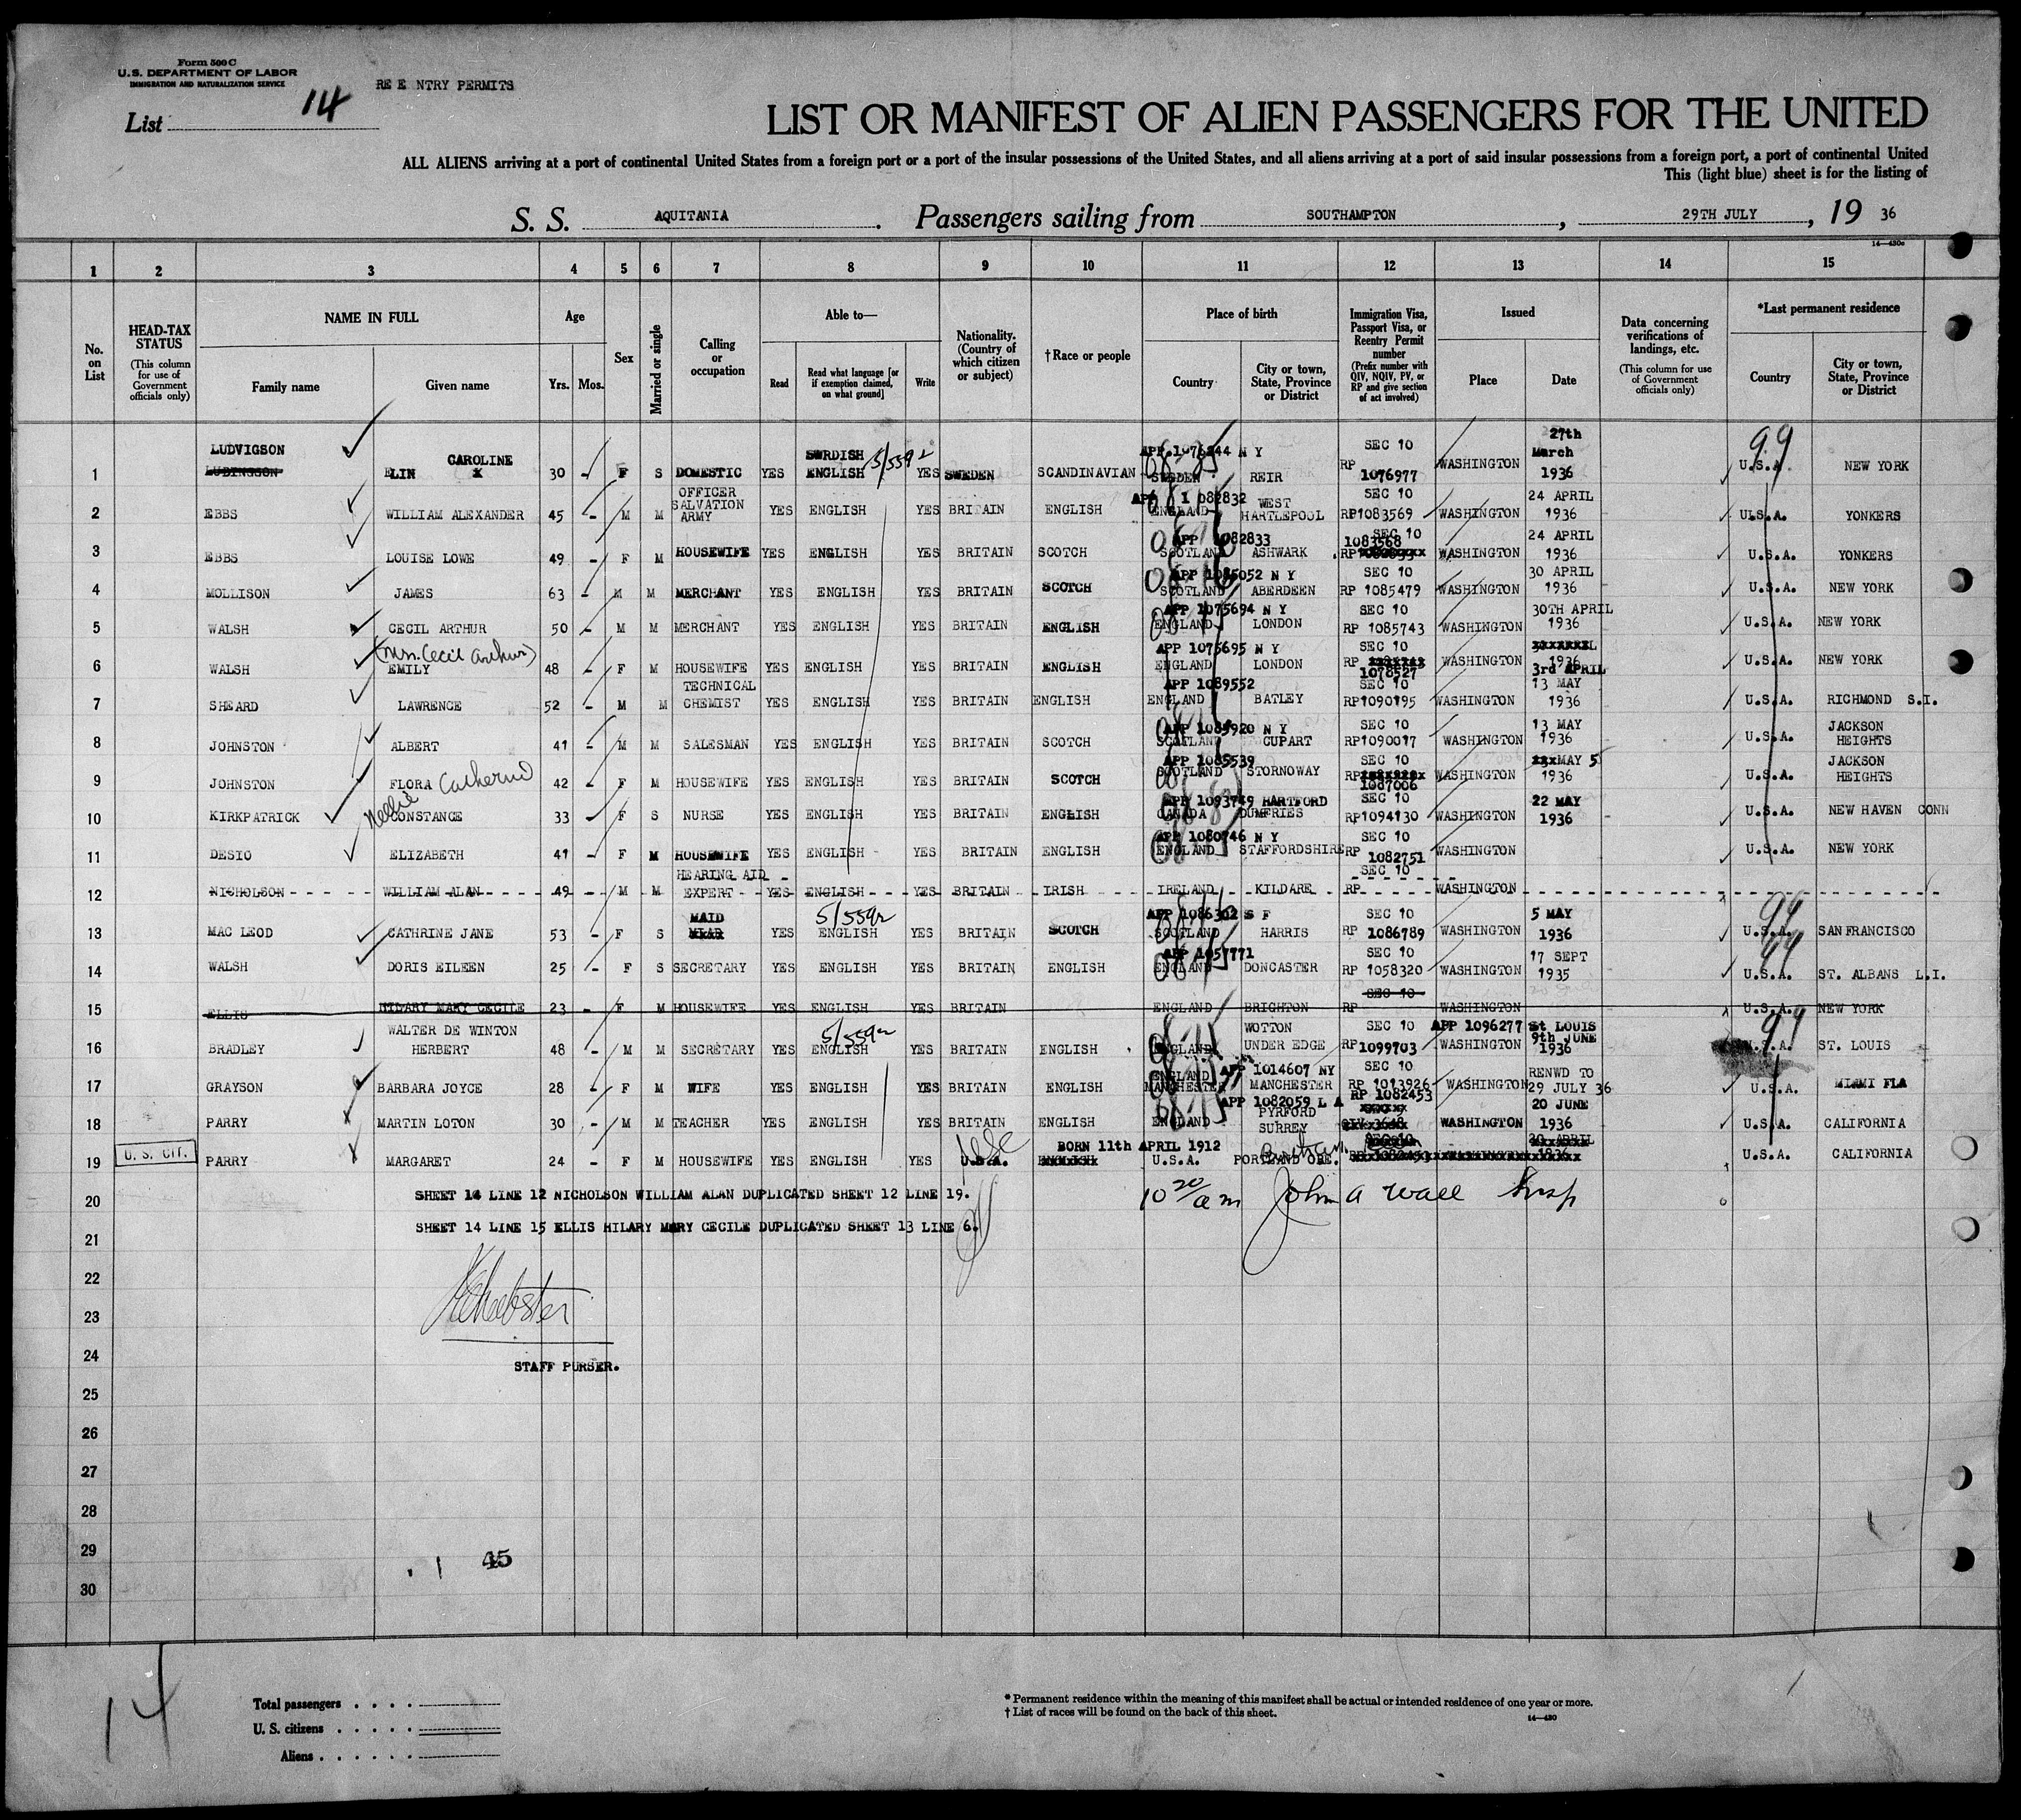 Form 500 C
U. S. DEPARTMENT OF LABOR
IMMIGRATION AND NATURALIZATION SERVICE
RE E NTRY PERMITS
List 14
LIST OR MANIFEST OF ALIEN PASSENGERS FOR THE UNITED
ALL ALIENS arriving at a port of continental United States from a foreign port or a port of the insular possessions of the United States, and all aliens arriving at a port of said insular possessions from a foreign port, a port of continental United
This (light blue) sheet is for the listing of
S. S. AQUITANIA. Passengers sailing from SOUTHAMPTON, 29TH JULY, 19 36
14—430c
1 2 3 4 5 6 7 8 9 10 11 12 13 14 15
No. on List
HEAD-TAX STATUS (This column for use of Government officials only)
NAME IN FULL Family name Given name
Age Yrs. Mos.
Sex
Married or single
Calling or occupation
Able to— Read Read what language [or if exemption claimed, on what ground] Write
Nationality. (Country of which citizen or subject)
†Race or people
Place of birth Country City or town, State, Province or District
Immigration Visa, Passport Visa, or Reentry Permit number (Prefix number with QIV, NQIV, PV, or RP and give section of act involved)
Issued Place Date
Data concerning verifications of landings, etc. (This column for use of Government officials only)
*Last permanent residence Country City or town, State, Province or District
LUDVIGSON CAROLINE SWRDISH 5/5592 APP.1076244 N Y SEC 10 27th March 99
1 LUDINGSON ELIN X 30 - F S DOMESTIC YES ENGLISH YES SWEDEN SCANDINAVIAN SWEDEN REIR RP 1076977 WASHINGTON 1936 U.S.A. NEW YORK
OFFICER SALVATION ARMY APP 1 082832 WEST HARTLEPOOL SEC 10 24 APRIL
2 EBBS WILLIAM ALEXANDER 45 - M M YES ENGLISH YES BRITAIN ENGLISH ENGLAND RP1083569 WASHINGTON 1936 U.S.A. YONKERS
APP 1082833 SEC 10 1083568 24 APRIL
3 EBBS LOUISE LOWE 49 - F M HOUSEWIFE YES ENGLISH YES BRITAIN SCOTCH SCOTLAND ASHWARK RP WASHINGTON 1936 U.S.A. YONKERS
APP 1085052 N Y SEC 10 30 APRIL
4 MOLLISON JAMES 63 - M M MERCHANT YES ENGLISH YES BRITAIN SCOTCH SCOTLAND ABERDEEN RP 1085479 WASHINGTON 1936 U.S.A. NEW YORK
APP 1075694 N Y SEC 10 30TH APRIL
5 WALSH CECIL ARTHUR 50 - M M MERCHANT YES ENGLISH YES BRITAIN ENGLISH ENGLAND LONDON RP 1085743 WASHINGTON 1936 U.S.A. NEW YORK
(Mrs. Cecil Arthur) APP 1075695 N Y SEC 10
6 WALSH EMILY 48 - F M HOUSEWIFE YES ENGLISH YES BRITAIN ENGLISH ENGLAND LONDON RP 1078527 WASHINGTON 1936 3rd APRIL U.S.A. NEW YORK
TECHNICAL APP 1089552 SEC 10 13 MAY
7 SHEARD LAWRENCE 52 - M M CHEMIST YES ENGLISH YES BRITAIN ENGLISH ENGLAND BATLEY RP1090195 WASHINGTON 1936 U.S.A. RICHMOND S.I.
APP 1085920 N Y SEC 10 13 MAY JACKSON HEIGHTS
8 JOHNSTON ALBERT 41 - M M SALESMAN YES ENGLISH YES BRITAIN SCOTCH SCOTLAND CUPART RP1090017 WASHINGTON 1936 U.S.A.
APP 1085539 SEC 10 MAY 5 JACKSON HEIGHTS
9 JOHNSTON FLORA Catherine 42 - F M HOUSEWIFE YES ENGLISH YES BRITAIN SCOTCH SCOTLAND STORNOWAY RP 1087006 WASHINGTON 1936 U.S.A.
Nellie APP 1093749 HARTFORD SEC 10 22 MAY
10 KIRKPATRICK CONSTANCE 33 - F S NURSE YES ENGLISH YES BRITAIN ENGLISH CANADA DUMFRIES RP1094130 WASHINGTON 1936 U.S.A. NEW HAVEN CONN
APP 1080746 N Y SEC 10
11 DESIO ELIZABETH 41 - F M HOUSEWIFE YES ENGLISH YES BRITAIN ENGLISH ENGLAND STAFFORDSHIRE RP 1082751 WASHINGTON U.S.A. NEW YORK
HEARING AID SEC 10
12 NICHOLSON WILLIAM ALAN 49 - M M EXPERT YES ENGLISH YES BRITAIN IRISH IRELAND KILDARE RP WASHINGTON
MAID 5/5592 APP 1086302 S F SEC 10 5 MAY 99
13 MAC LEOD CATHRINE JANE 53 - F S YES ENGLISH YES BRITAIN SCOTCH SCOTLAND HARRIS RP 1086789 WASHINGTON 1936 U.S.A. SAN FRANCISCO
APP 1057771 SEC 10 17 SEPT 99
14 WALSH DORIS EILEEN 25 - F S SECRETARY YES ENGLISH YES BRITAIN ENGLISH ENGLAND DONCASTER RP 1058320 WASHINGTON 1935 U.S.A. ST. ALBANS L.I.
SEC 10
15 ELLIS HILARY MARY CECILE 23 - F M HOUSEWIFE YES ENGLISH YES BRITAIN ENGLAND BRIGHTON RP WASHINGTON U.S.A. NEW YORK
WALTER DE WINTON 5/5592 WOTTON SEC 10 APP 1096277 St LOUIS 9th JUNE 99
16 BRADLEY HERBERT 48 - M M SECRETARY YES ENGLISH YES BRITAIN ENGLISH ENGLAND UNDER EDGE RP 1099703 WASHINGTON 1936 U.S.A. ST. LOUIS
ENGLAND APP 1014607 NY SEC 10 RENWD TO
17 GRAYSON BARBARA JOYCE 28 - F M WIFE YES ENGLISH YES BRITAIN ENGLISH MANCHESTER MANCHESTER RP 1013926 WASHINGTON 29 JULY 36 U.S.A. MIAMI FLA
APP 1082059 L A PYRFORD RP 1082453 20 JUNE
18 PARRY MARTIN LOTON 30 - M M TEACHER YES ENGLISH YES BRITAIN ENGLISH ENGLAND SURREY WASHINGTON 1936 U.S.A. CALIFORNIA
U. S. CIT. BORN 11th APRIL 1912 SEC 10 20 APRIL
19 PARRY MARGARET 24 - F M HOUSEWIFE YES ENGLISH YES U.S.A. U.S.A. PORTLAND ORE. 1936 U.S.A. CALIFORNIA
20 SHEET 14 LINE 12 NICHOLSON WILLIAM ALAN DUPLICATED SHEET 12 LINE 19. 10 20/am John A Wall Insp
21 SHEET 14 LINE 15 ELLIS HILARY MARY CECILE DUPLICATED SHEET 13 LINE 6.
22
23
24 STAFF PURSER.
25
26
27
28
29 1 45
30
14
Total passengers
U. S. citizens
Aliens
* Permanent residence within the meaning of this manifest shall be actual or intended residence of one year or more.
† List of races will be found on the back of this sheet.
14—430